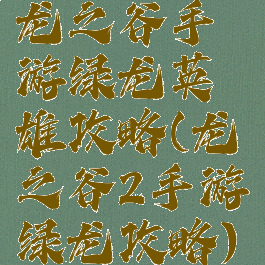 龙之谷手
游绿龙英
雄攻略(龙
之谷2手游
绿龙攻略)